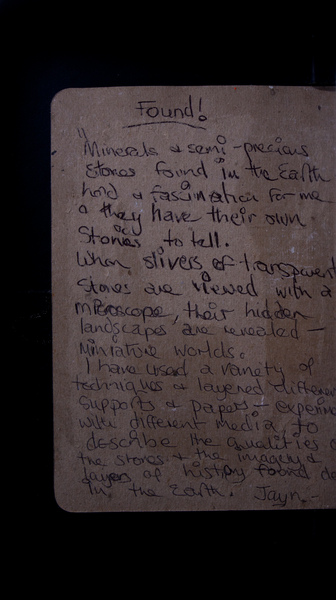 Found!
"Minerals & semi-precious
stones found in the Earth
hold a fascination for me
& they have their own
stories to tell.
When slivers of transparent
stones are viewed with a
microscope, their hidden
landscapes are revealed -
miniature worlds.
I have used a variety of
techniques & layered different
supports & papers +
with different media, to
describe the qualities o
the stones + the imagery &
layers of history found de
in the Earth. Jayn.-